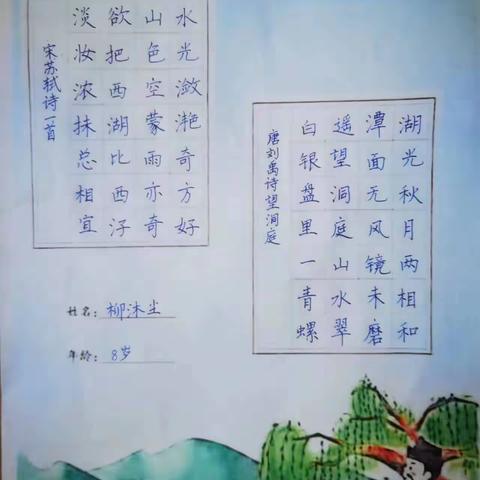 水光潋滟奇方好
山色空蒙雨亦奇
欲把西湖比西汓
淡妆浓抹总相宜
宋苏轼诗一首
湖光秋月两相和
潭面无风镜未磨
遥望洞庭山水翠
白银盘里一青螺
唐刘禹诗望洞庭
姓名：柳沐尘
年龄：8岁